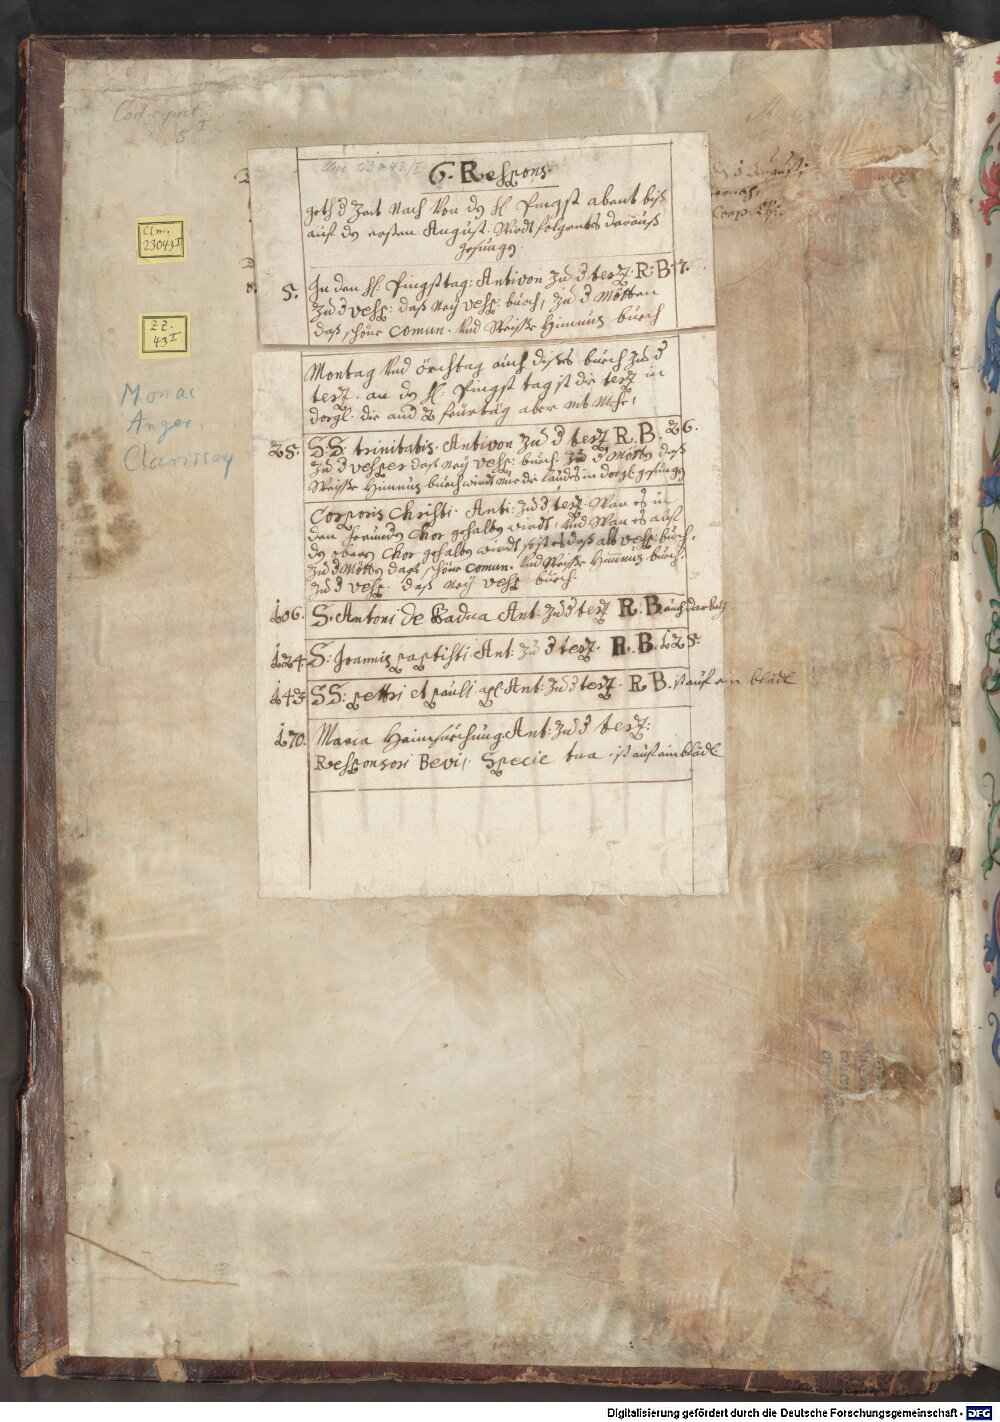 Cod. c. pict.
5 I
Clm.
23043 I
ZZ.
43 I
Monac
Anger.
Clarissay
Clm 23043/I
6. Respons.
geth d Zeit Nach Von dẏ H. Pingst abent biß
auf dẏ ersten August. Wirdt folgentes darauß
gesungẏ.
5. In den H. Pingsttag: Antivon Zu d tertz. R. B 17.
Zu d vesp: daß Neẏ vesp: buech, Zu d Metten
daß schöne Comun. Und Weisse Himnus buech
Montag Und örchtag auch dises buech Zu d
tertz. an dẏ H. Pingst tag ist die tertz in
dorgl. die and 2 feürtäg aber nit Mehr,
25. S.S. trinitatis. Antivon Zu d tertz R. B. 26.
Zu d vesper daß Neẏ vesp: buech. Zu d Mettẏ daß
Weisse Himnus buech wirdt nur die Laudes in dorgl. gesungẏ
Corporis Christi. Anti: Zu d tertz. Wan es in
den Chor gehaltẏ wirdt, Und Wan es auf
dẏ obern Chor gehaltẏ wirdt daß alt vesp: buech.
Zu d Mettẏ daß schöne Comun. Und Weisse Himnus buech.
Zu d vesp. daß Neẏ vesp buech.
106. S. Antoni de Badua Ant: Zu d tertz R. B. auch darbeẏ
124. S: Joannis paptisti Ant: Zu d tertz. R. B. 125.
143 SS: pettri et pauli apl. Ant: Zu d tertz. R B. ist auf ein blädl
170. Maria Heimsuchung Ant: Zu d tertz:
Responsori Bevi: Specie tua ist auf ein blädl
August
Corp. Chi.
Digitalisierung gefördert durch die Deutsche Forschungsgemeinschaft - DFG